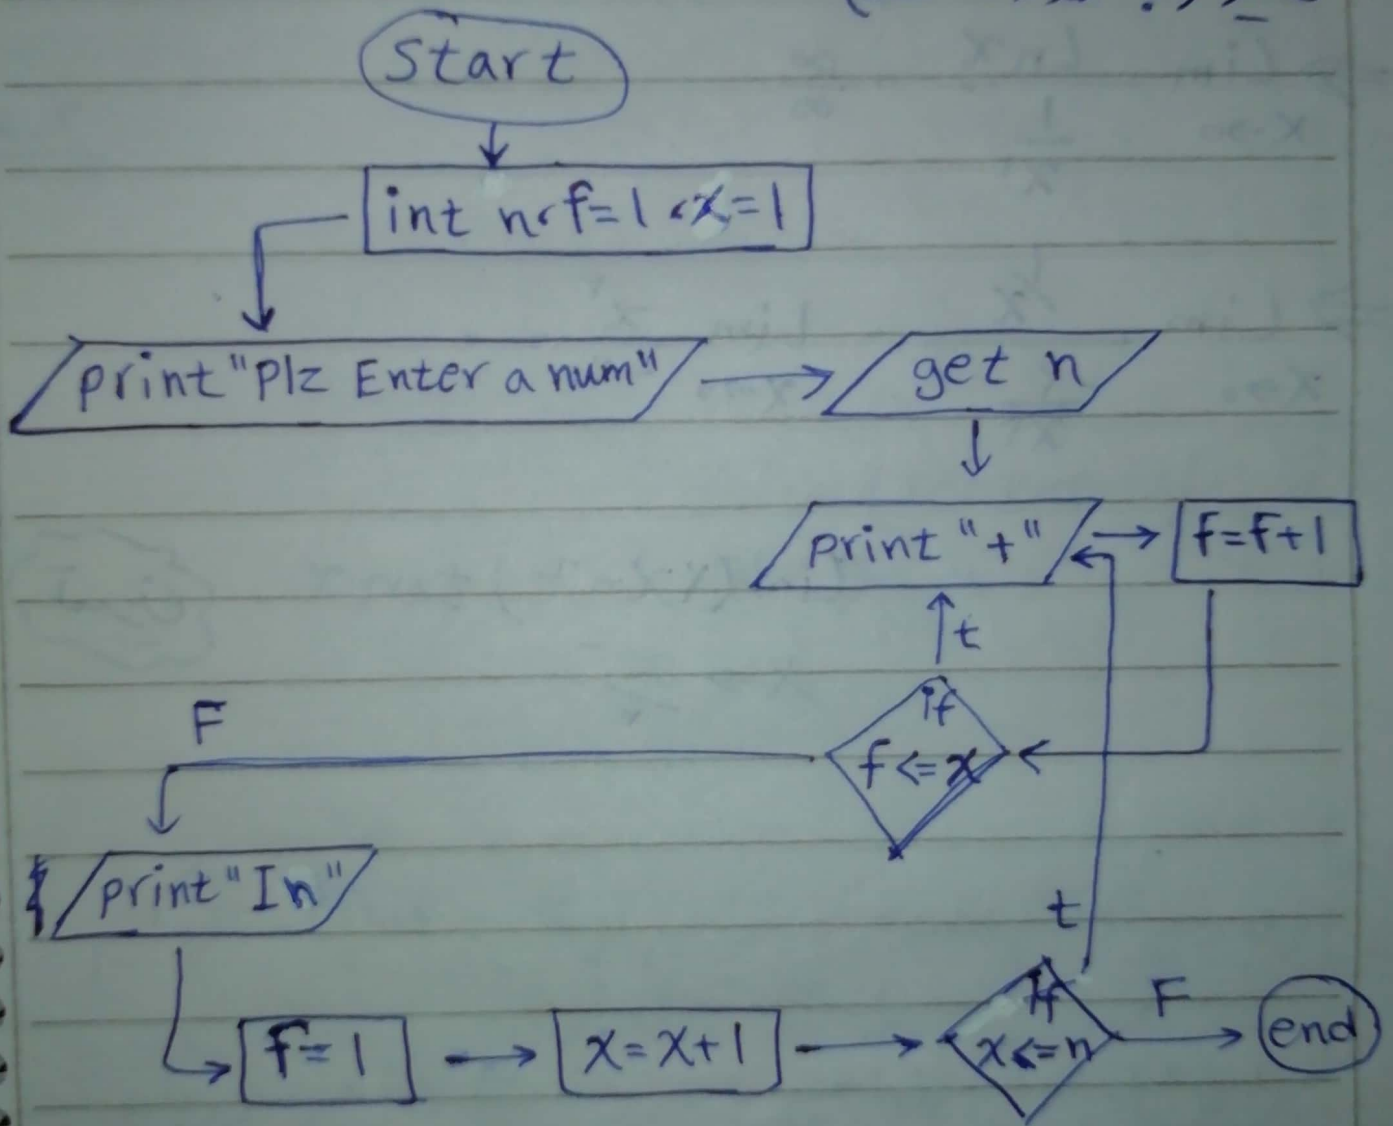 start
int n, f=1, x=1
print "Plz Enter a num"
get n
print "+"
f=f+1
t
if
f<=x
F
print "In"
t
f=1
x=x+1
If
x<=n
F
end